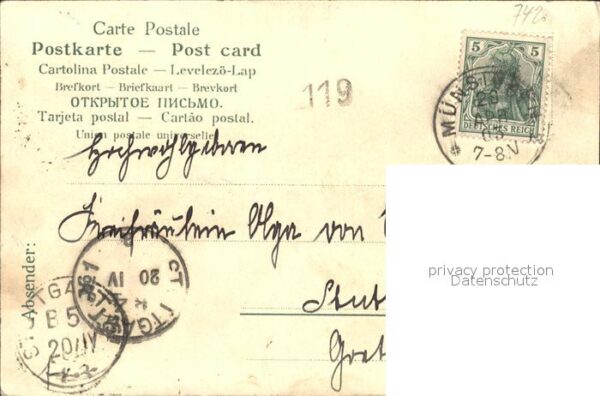 742
Carte Postale
Postkarte — Post card
Cartolina Postale — Levelező-Lap
Brefkort — Briefkaart — Brevkort
ОТКРЫТОЕ ПИСЬМО.
Tarjeta postal. — Cartão postal.
Union postale universelle
119
5 5
DEUTSCHES REICH
* MÜNSINGEN
20
APR
7-8.V
Hochwohlgeboren
Freifräulein Olga von
Stutt
privacy protection
Datenschutz
Absender:
STUTTGART
No 1
20
IV
B5
20/IV